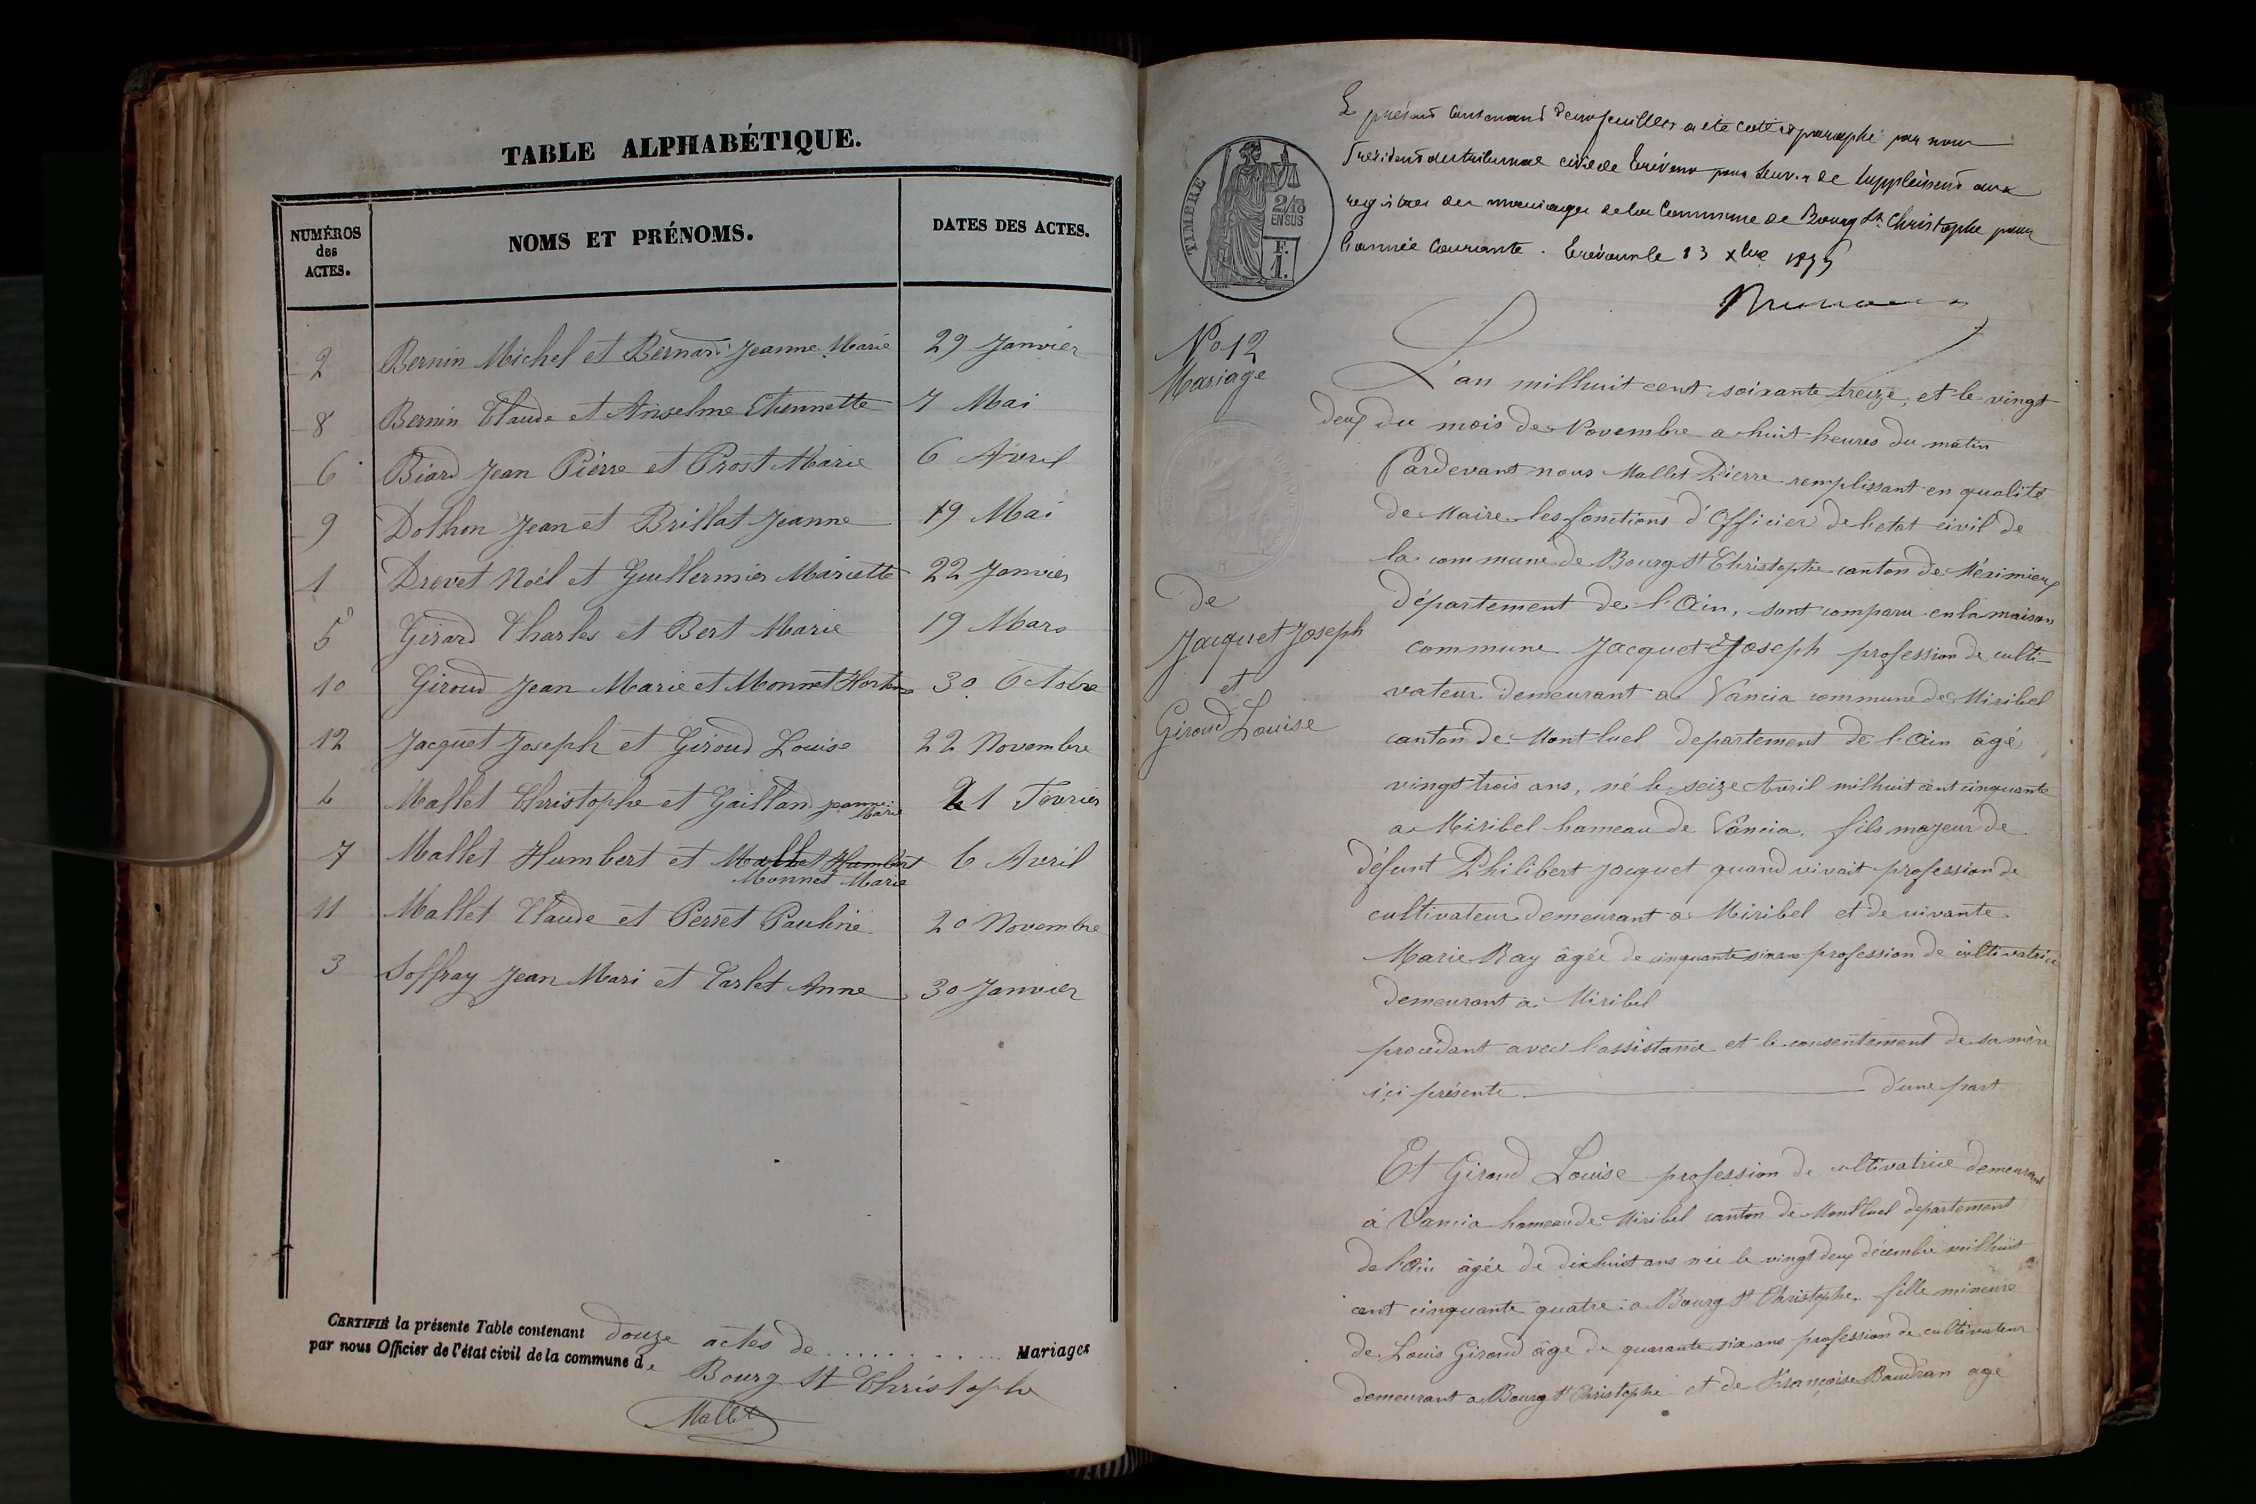 TABLE ALPHABÉTIQUE.
NUMÉROS des ACTES.
NOMS ET PRÉNOMS.
DATES DES ACTES.
2 Bernin Michel et Bernard Jeanne Marie 29 Janvier
8 Bernin Claude et Anselme Etiennette 7 Mai
6 Biard Jean Pierre et Prost Marie 6 Avril
9 Dothon Jean et Brillat Jeanne 19 Mai
1 Drevet Noël et Guillermier Mariette 22 Janvier
5 Girard Charles et Bert Marie 19 Mars
10 Giroud Jean Marie et Monnet Hortense 30 Octobre
12 Jacquet Joseph et Giroud Louise 22 Novembre
4 Mallet Christophe et Gailland Jeanne Marie 21 Fevrier
7 Mallet Humbert et Mallet Humbert 6 Avril
Monnet Marie
11 Mallet Claude et Perret Pauline 20 Novembre
3 Soffray Jean Mari et Carlet Anne 30 Janvier
CERTIFIÉ la présente Table contenant douze actes de Mariages
par nous Officier de l'état civil de la commune de Bourg St Christophe
Mallet
Le présent contenant deux feuilles a été coté et paraphé par nous
Président du tribunal civil de Trévoux pour servir de supplément aux
registres des mariages de la Commune de Bourg St Christophe pour
l'année Courante. Trévoux le 13 xbre
TIMBRE
2/10
EN SUS
F.
1.
No 12
Mariage
de
Jacquet Joseph
et
Giroud Louise
L'an milhuit cent soixante treize, et le vingt
deux du mois de Novembre a huit heures du matin
Pardevant nous Mallet Pierre remplissant en qualité
de Maire les fonctions d'Officier de l'etat civil de
la commune de Bourg St Christophe canton de Méximieux
département de l'Ain, sont comparu en la maison
commune Jacquet Joseph profession de culti-
vateur demeurant a Vancia commune de Miribel
canton de Montluel departement de l'Ain âgé
vingt trois ans, né le seize Avril milhuit cent cinquante
a Miribel hameau de Vancia. fils majeur de
défunt Philibert Jacquet quand vivait profession de
cultivateur demeurant a Miribel et de vivante
Marie Ray âgée de cinquante six ans profession de cultivatrice
demeurant a Miribel
procédant avec l'assistance et le consentement de sa mère
ici présente d'une part
Et Giroud Louise profession de cultivatrice demeurant
á Vancia hameau de Miribel canton de Montluel departement
de l'Ain âgée de dixhuit ans née le vingt deux décembre milhuit
cent cinquante quatre a Bourg St Christophe. fille mineure
de Louis Giroud âgé de quarante six ans profession de cultivateur
demeurant a Bourg St Christophe et de Françoise Baudran agé